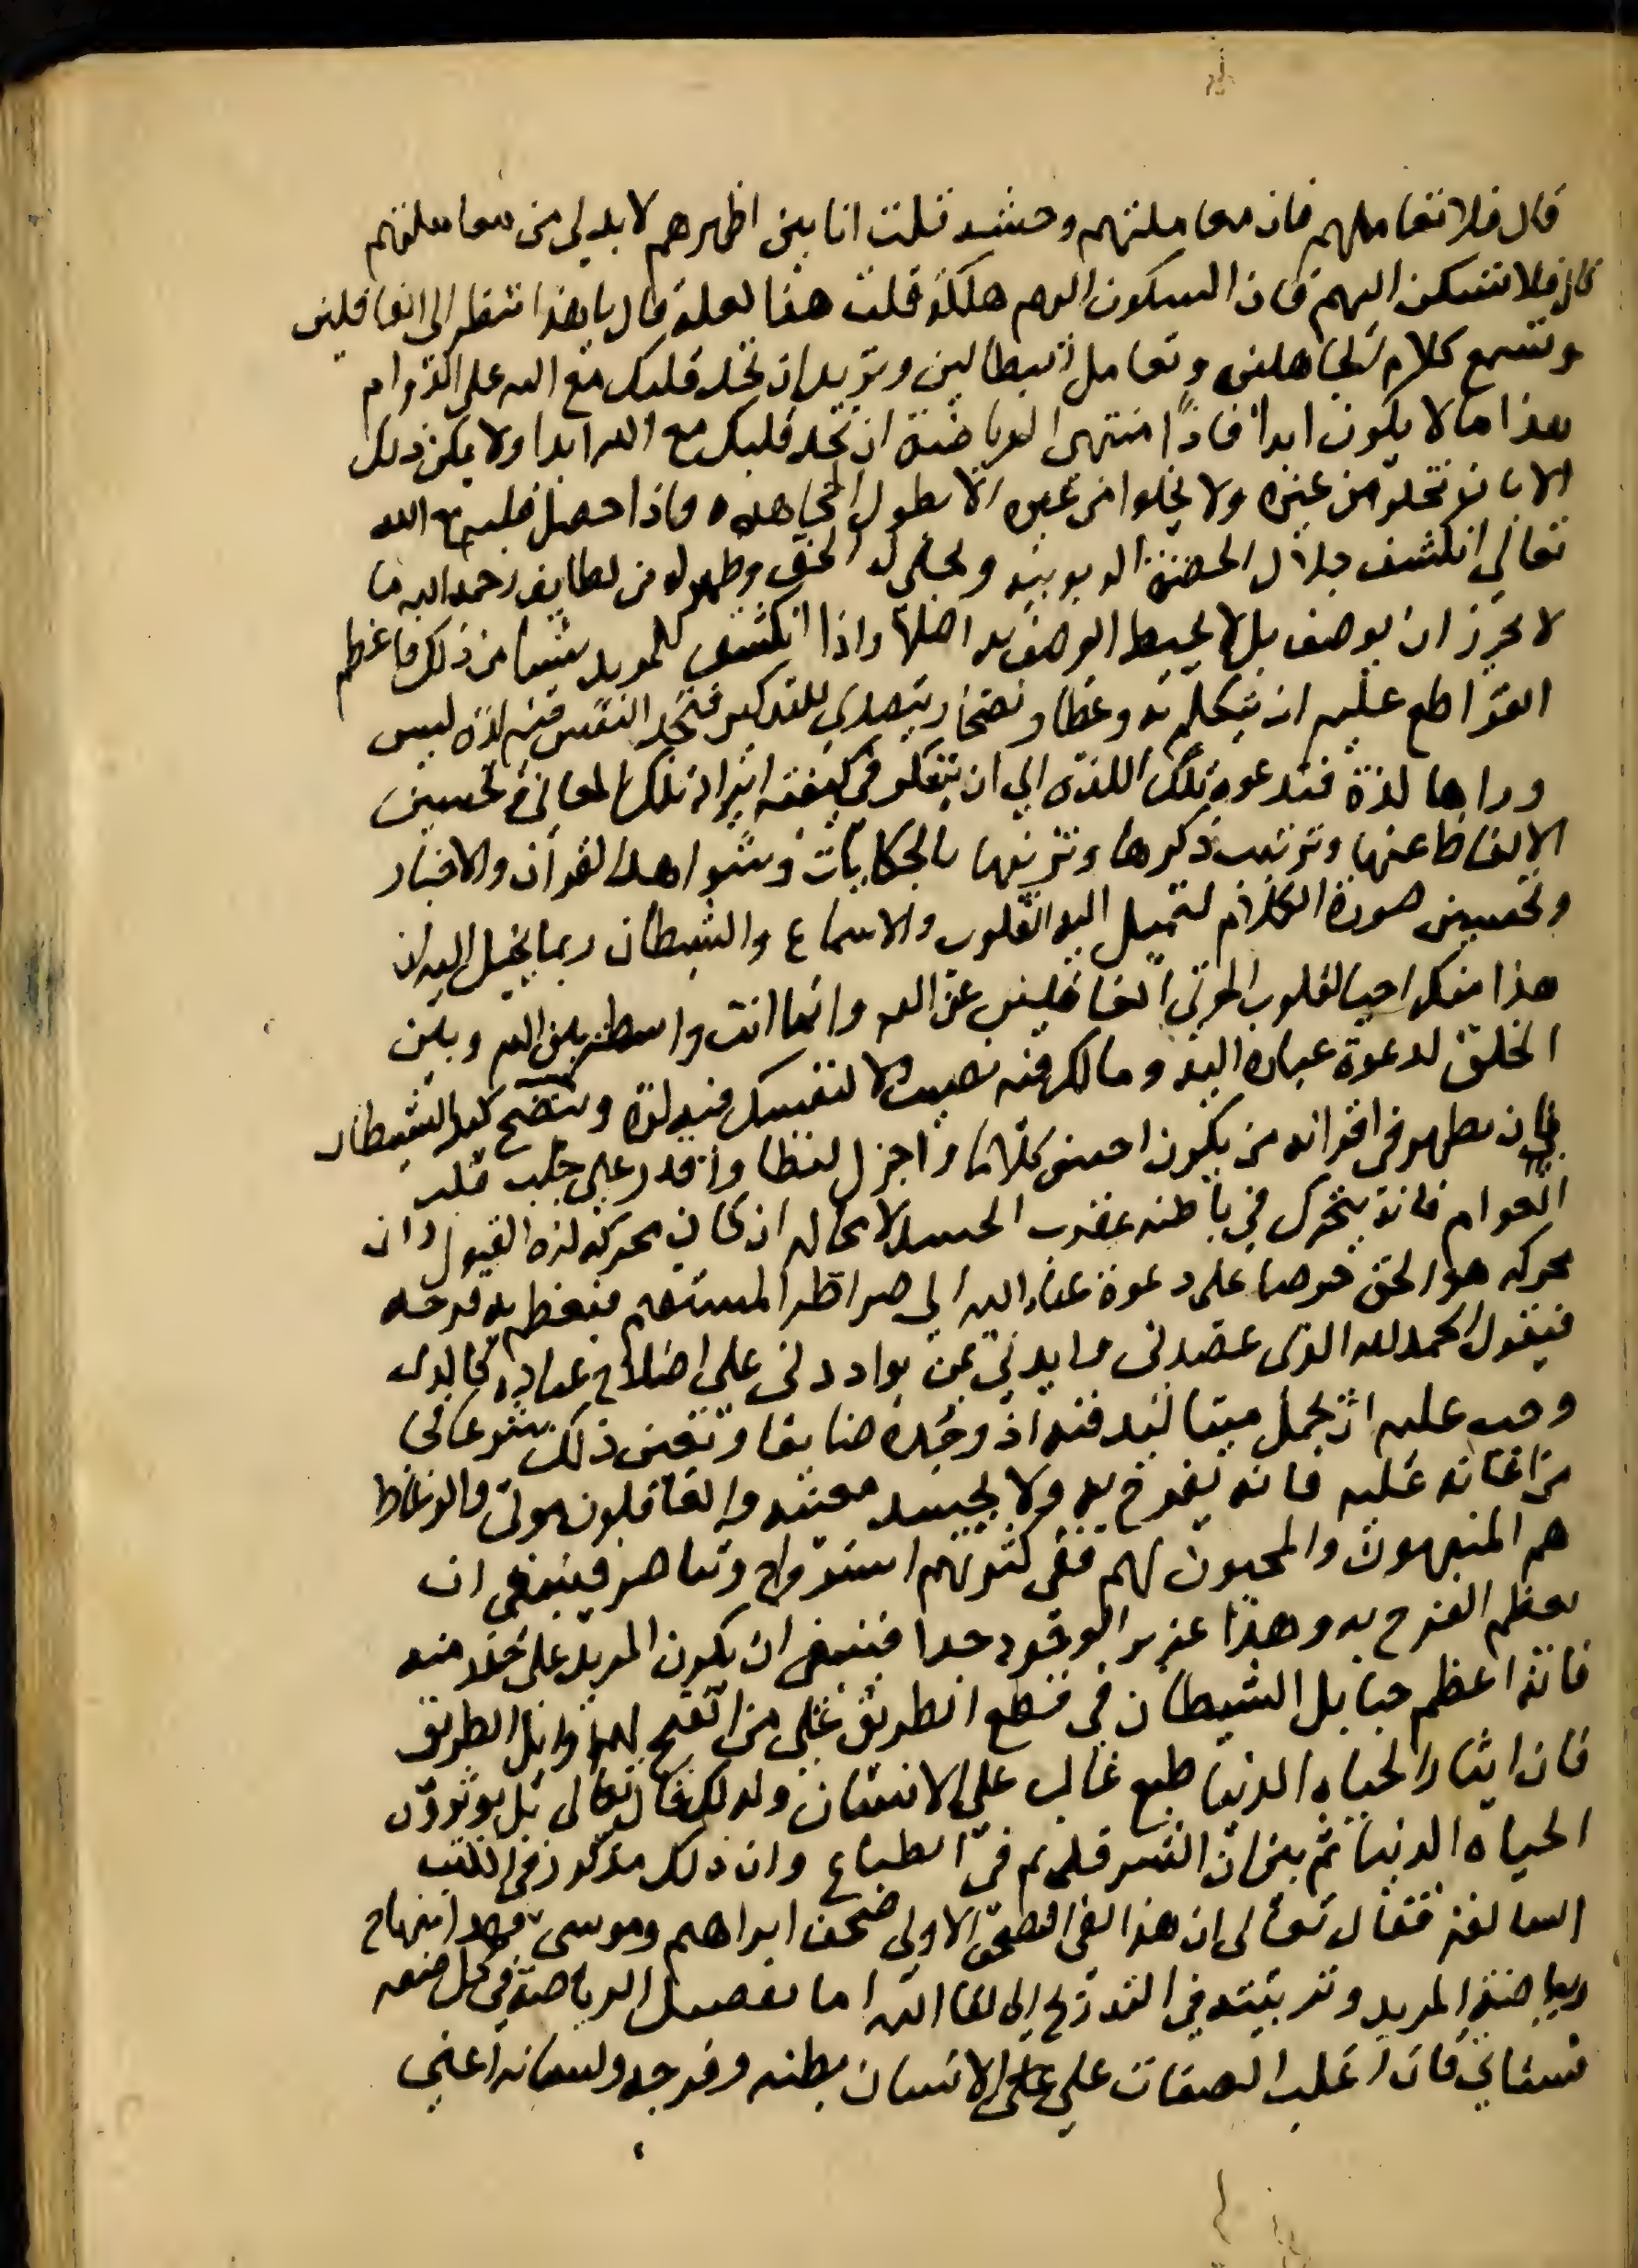 قال فلا تعاملهم فان معاملتهم وحشه قلت انا بين اظهرهم لا بد لي من معاملتهم
قال فلا تسكن اليهم فان السكون اليهم هلكة قلت هذا لعله قال يا هذا انتظر الى الغافلين
وتسمع كلام الجاهلين وتعامل البطالين وتريد ان تجد قلبك مع الله على الدوام
هذا ما لا يكون ابدا فاذا منتهى الرياضة ان تجد قلبك مع الله ابدا ولا يمكن ذلك
الا بان تخلو من غيره ولا يخلوا من غيره الا بطول المجاهده فاذا حصل قلبه مع الله
تعالي انكشف جلال الحضرة الربوبيه وتجلى له الحق وظهر له من لطايف رحمة الله ما
لا يجوز ان يوصف بل لا يحيط الوصف به اصلا واذا انكشف للمريد شيا من ذلك فاعظم
القواطع عليه ان يتكلم به وعظا ونصحا ويتصدي للتذكير فتجد النفس فيه لذة ليس
وراها لذة فتدعوه تلك اللذة الي ان يتفكر في كيفية ايراد تلك المعاني وتحسين
الالفاظ عنها وترتيب ذكرها وتزيينها بالحكايات وشواهد القرآن والاخبار
وتحسين صورة الكلام لتميل اليه القلوب والاسماع والشيطان ربما يخيل اليه ان
هذا منك احيا لقلوب الموتى الغافلين عن الله وانما انت واسطة بين الله وبين
الخلق لدعوة عباده اليه وما لك فيه نصيب ولا لنفسك فيه لذة ويتضح كيد الشيطان
بان يظهر في اقرانه من يكون احسن كلاما واجزل لفظا واقدر على جلب قلب
العوام فانه يتحرك في باطنه عقرب الحسد لا محاله ان كان محركه لذة القبول وان
محركه هو الحق حرصا على دعوة عباد الله الى صراطه المستقيم فيعظم به فرحه
فيقول الحمد لله الذي عضدني وايدني بمن يوازرني على اصلاح عباده كالذى
وجب عليه ان يحمل ميتا ليدفنه اذ وجده ضايعا وتعين ذلك شرعا فجا
من اعانه عليه فانه يفرح به ولا يحسد معينه والغافلون موتى والوعاظ
هم المنبهون والمحيون لهم ففي كثرتهم استرواح وتناصر فينبغي ان
يعظم الفرح به وهذا عزيز الوجود جدا فينبغي ان يكون المريد على حذر منه
فانه اعظم حبايل الشيطان في قطع الطريق على من انفتح له اوايل الطريق
فان ايثار الحياه الدنيا طبع غالب على الانسان ولذلك قال تعالى بل تؤثرون
الحياة الدنيا ثم بين ان الشر قديم في الطباع وان ذلك مذكور في الكتب
السالفة فقال تعالى ان هذا لفي الصحف الاولى صحف ابراهيم وموسى فهذا منهاج
رياضة المريد وتربيته في التدريج الى لقا الله اما تفصيل الرياضة في كل صفه
فسياتي فان اغلب الصفات علي على الانسان بطنه وفرجه ولسانه اعني